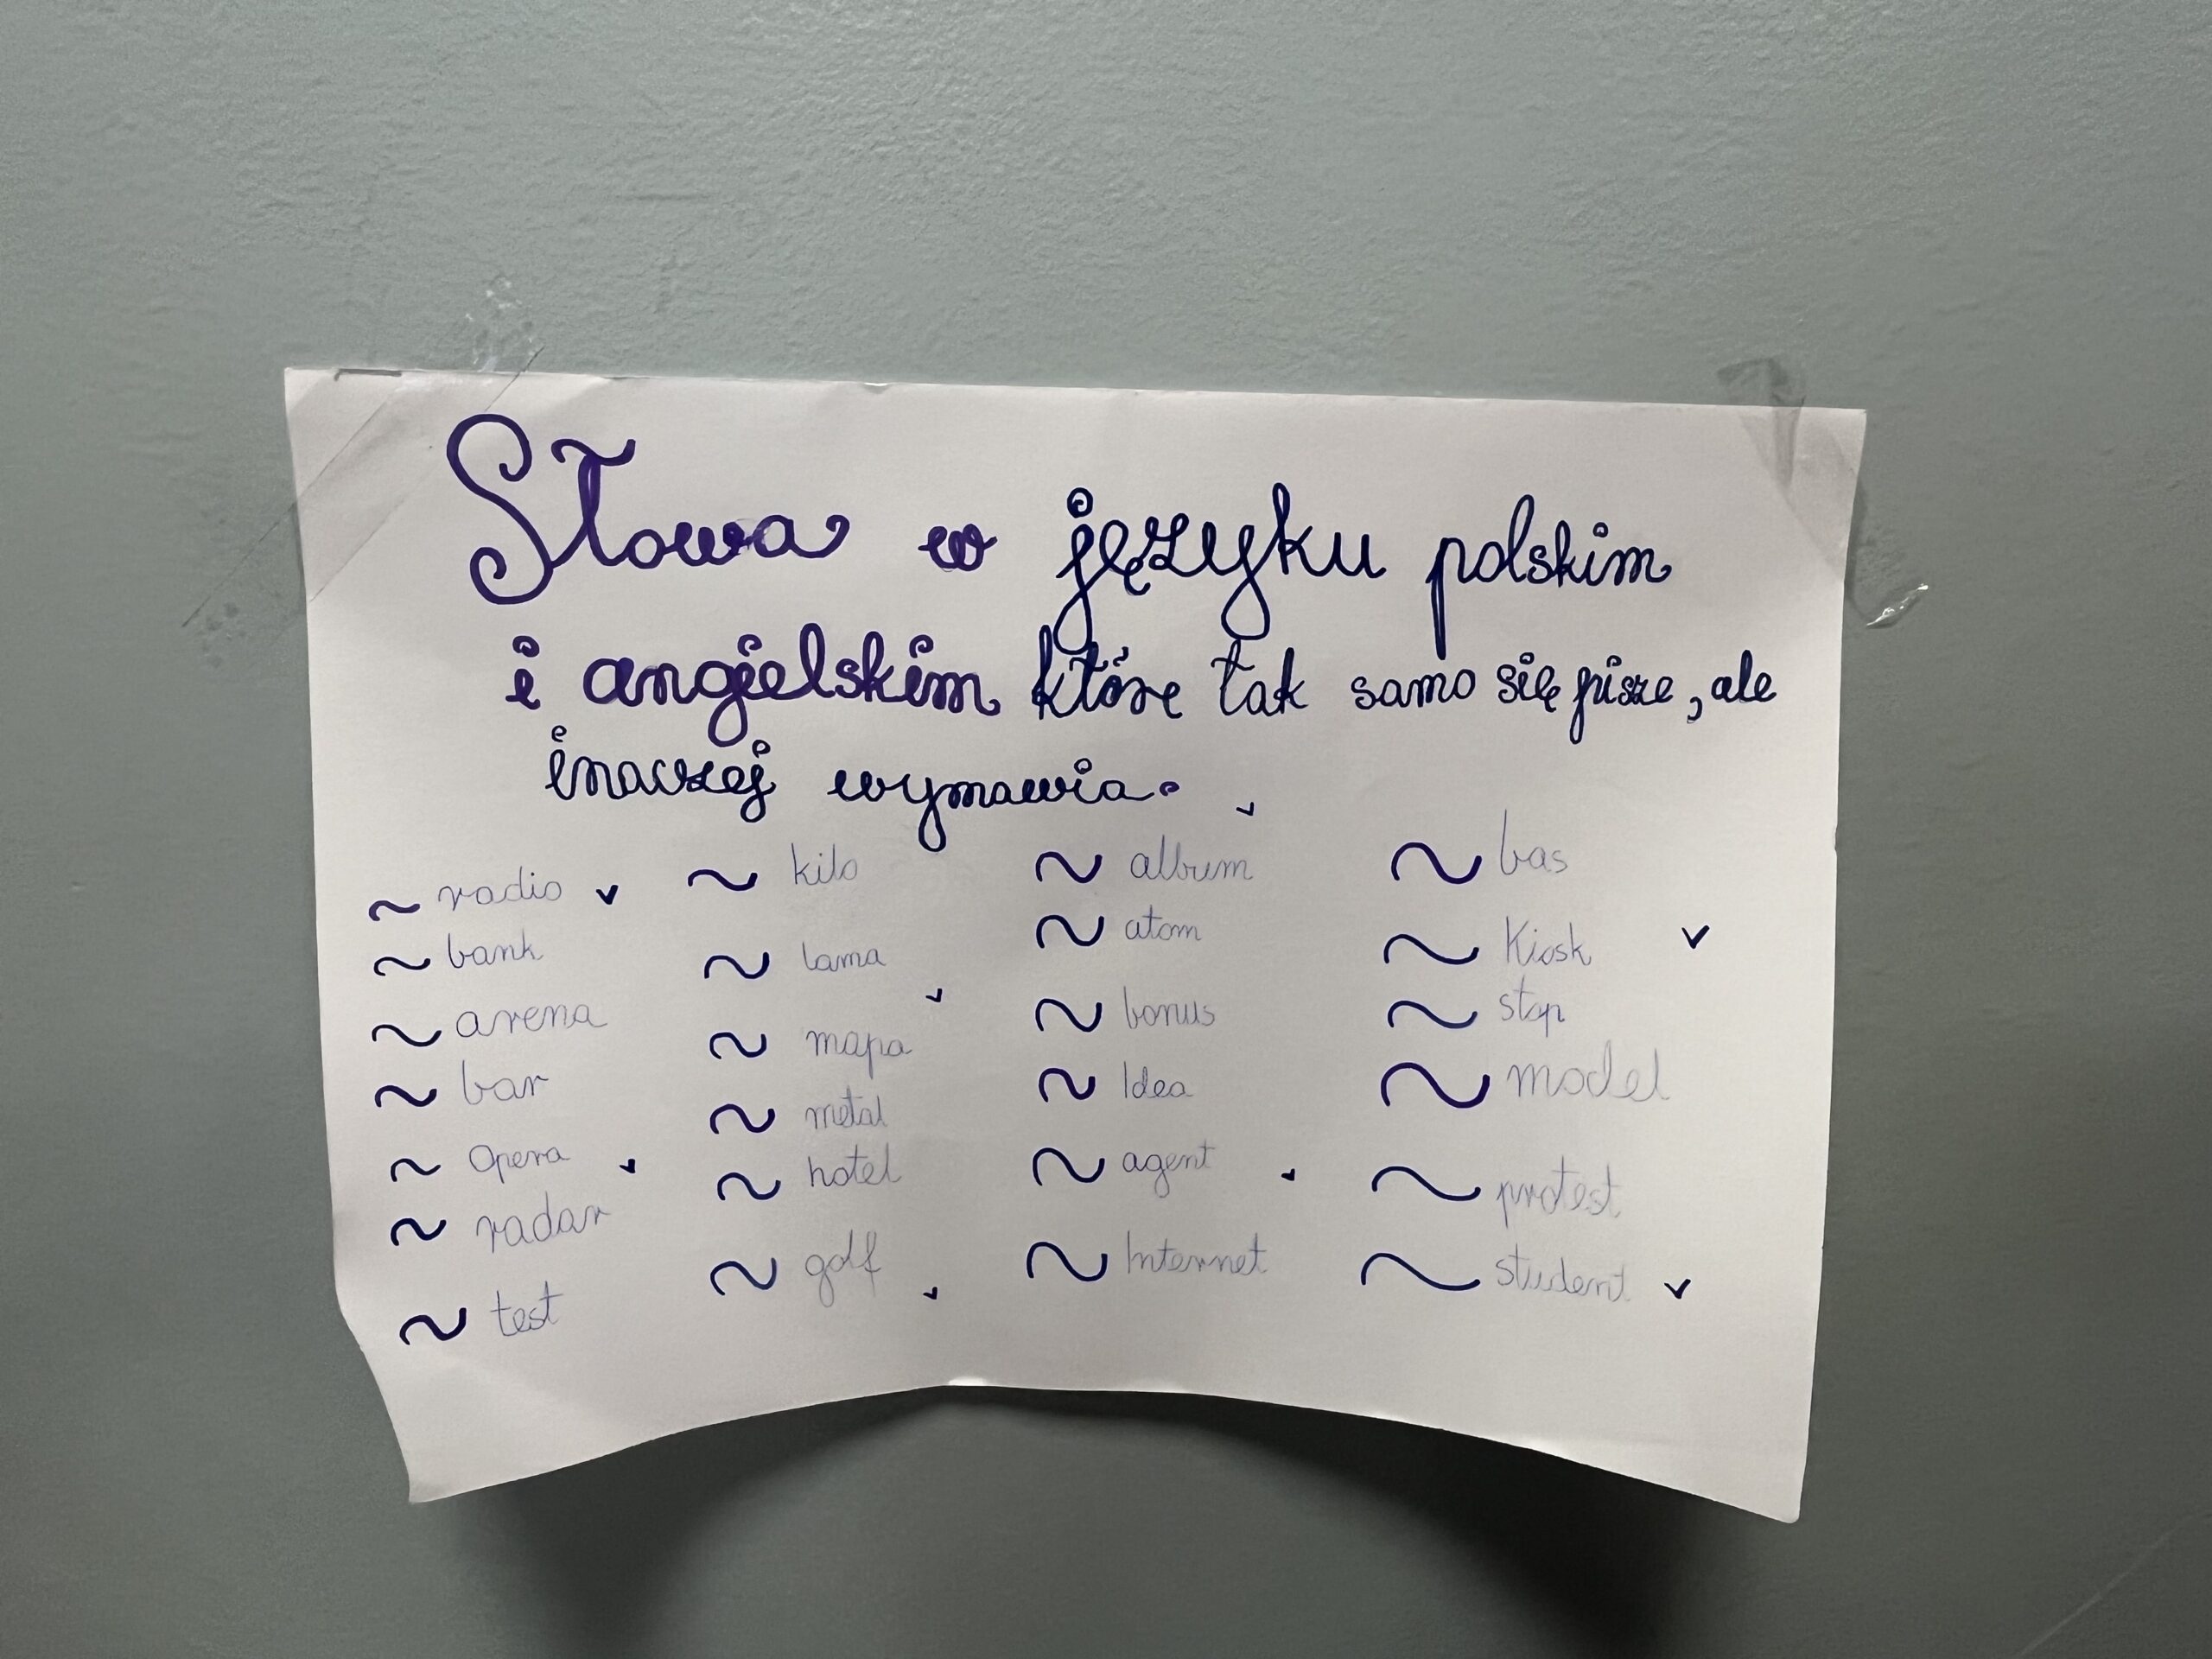 Słowa w języku polskim
i angielskim które tak samo się pisze, ale
inaczej wymawia.
~ radio ✓
~ bank
~ arena
~ bar
~ Opera ✓
~ radar
~ test
~ kilo
~ lama ✓
~ mapa
~ metal
~ hotel
~ golf ✓
~ album ✓
~ atom
~ bonus
~ Idea
~ agent ✓
~ Internet
~ bas
~ Kiosk ✓
~ stop
~ model
~ protest
~ student ✓